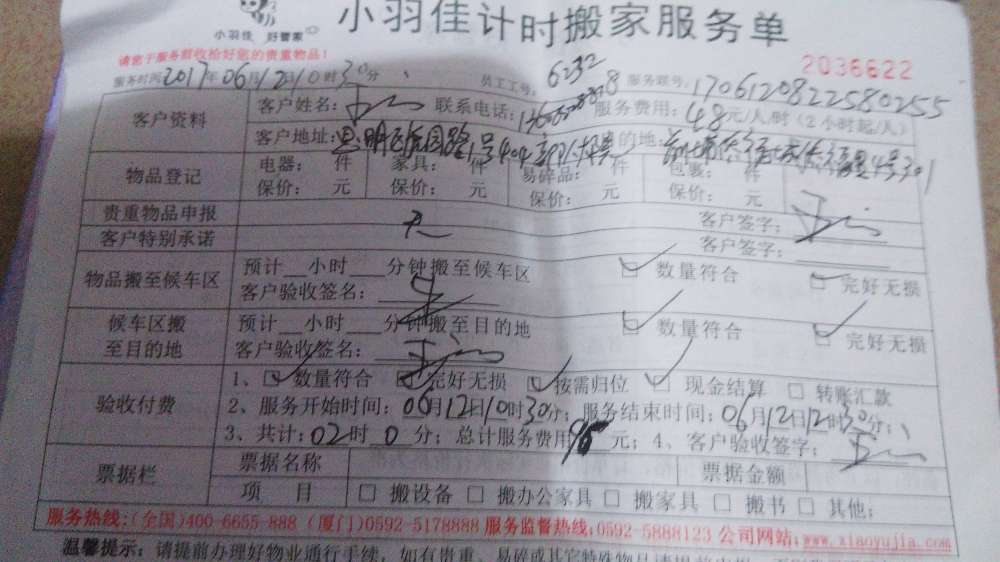 小羽佳 好管家
小羽佳计时搬家服务单
请您于服务前收拾好您的贵重物品!
2036622
服务时间2017年06月12日10时30分 员工工号:6232 服务联号:1706120822580255
客户资料 客户姓名: 联系电话: 服务费用:48元/人/时(2小时起/人)
客户地址:思明区 园路1号404 目的地: 4号301
物品登记 电器: 件 家具: 件 易碎品: 件 包裹: 件
保价: 元 保价: 元 保价: 元 保价: 元
贵重物品申报 无 客户签字:
客户特别承诺 客户签字:
物品搬至候车区 预计__小时___分钟搬至候车区 ☑ 数量符合 ☑ 完好无损
客户验收签名:
候车区搬至目的地 预计__小时___分钟搬至目的地 ☑ 数量符合 ☑ 完好无损
客户验收签名:
验收付费 1、☑ 数量符合 ☑ 完好无损 ☑ 按需归位 ☑ 现金结算 □ 转账汇款
2、服务开始时间:06月12日10时30分;服务结束时间:06月12日12时30分;
3、共计:02时 0 分;总计服务费用 元;4、客户验收签字:
票据栏 票据名称 票据金额
项 目 □ 搬设备 □ 搬办公家具 □ 搬家具 □ 搬书 □ 其他:
服务热线:(全国)400-6655-888 (厦门)0592-5178888 服务监督热线:0592-5888123 公司网站:www.xiaoyujia.com
温馨提示:请提前办理好物业通行手续,如有贵重、易碎或其它特殊物品请提前申报